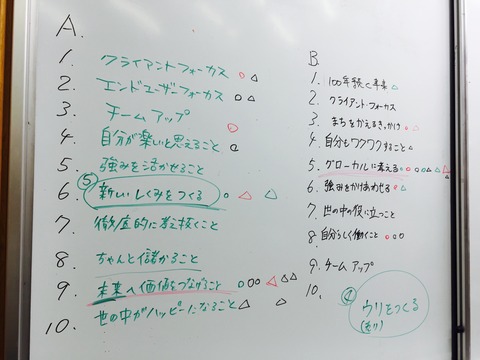 A.
1. クライアントフォーカス
2. エンドユーザーフォーカス
3. チームアップ
4. 自分が楽しいと思えること
5. 強みを活かせること
⑤
6. 新しいしくみをつくる
7. 徹底的に考え抜くこと
8. ちゃんと儲かること
9. 未来へ価値をつなげること
10. 世の中がハッピーになること
B.
1. 100年続く事業
2. クライアント・フォーカス
3. まちをかえるきっかけ
4. 自分もワクワクすること
5. グローカルに考える
6. 強みをかけあわせる
7. 世の中の役に立つこと
8. 自分らしく働くこと
9. チームアップ
10.
ウリをつくる
(売り)